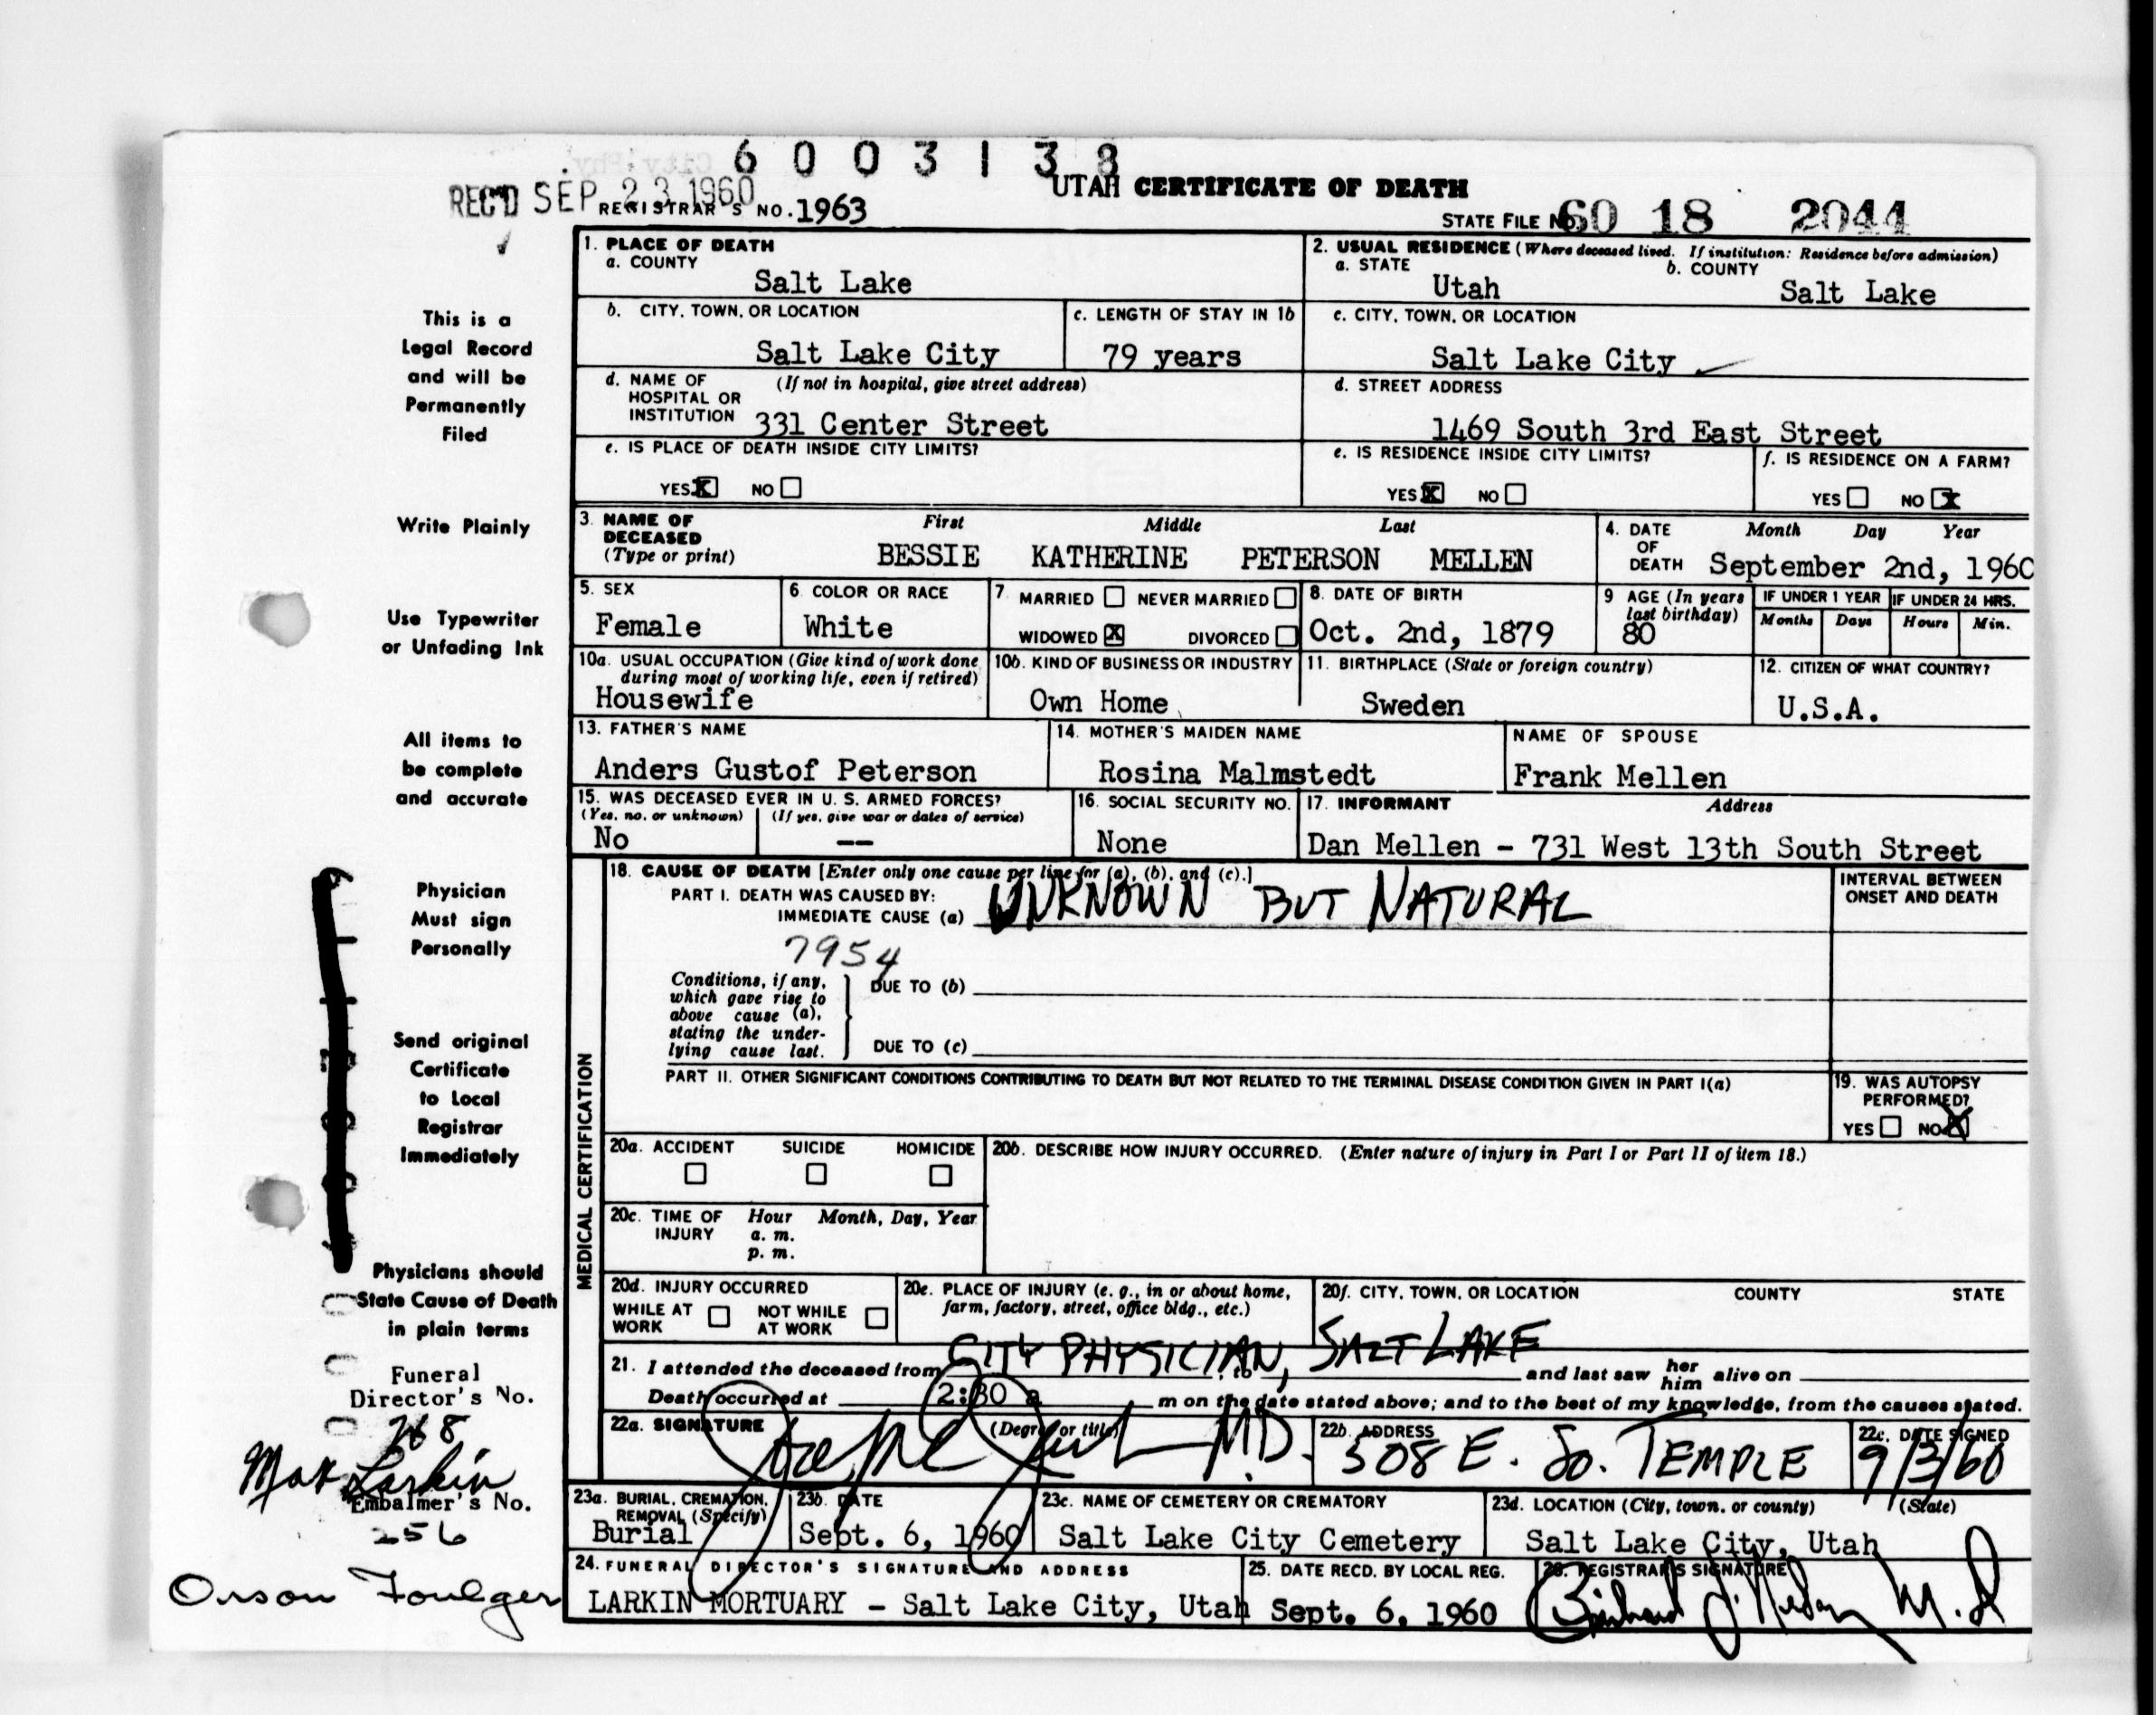 6 0 0 3 1 3 8
REC'D SEP 23 1960
UTAH CERTIFICATE OF DEATH
REGISTRAR'S NO. 1963
STATE FILE NO. 60 18 2044
This is a
Legal Record
and will be
Permanently
Filed
Write Plainly
Use Typewriter
or Unfading Ink
All items to
be complete
and accurate
Physician
Must sign
Personally
Send original
Certificate
to Local
Registrar
Immediately
Physicians should
State Cause of Death
in plain terms
Funeral
Director's No.
Max Larkin
Embalmer's No.
256
Orson Foulger
1. PLACE OF DEATH
a. COUNTY
Salt Lake
2. USUAL RESIDENCE (Where deceased lived. If institution: Residence before admission)
a. STATE
Utah
b. COUNTY
Salt Lake
b. CITY, TOWN, OR LOCATION
Salt Lake City
c. LENGTH OF STAY IN 1b
79 years
c. CITY, TOWN, OR LOCATION
Salt Lake City
d. NAME OF HOSPITAL OR INSTITUTION (If not in hospital, give street address)
331 Center Street
d. STREET ADDRESS
1469 South 3rd East Street
e. IS PLACE OF DEATH INSIDE CITY LIMITS?
YES X NO
e. IS RESIDENCE INSIDE CITY LIMITS?
YES X NO
f. IS RESIDENCE ON A FARM?
YES NO X
3. NAME OF DECEASED (Type or print)
First Middle Last
BESSIE KATHERINE PETERSON MELLEN
4. DATE OF DEATH
Month Day Year
September 2nd, 1960
5. SEX
Female
6. COLOR OR RACE
White
7. MARRIED NEVER MARRIED
WIDOWED X DIVORCED
8. DATE OF BIRTH
Oct. 2nd, 1879
9 AGE (In years last birthday)
80
IF UNDER 1 YEAR
Months Days
IF UNDER 24 HRS.
Hours Min.
10a. USUAL OCCUPATION (Give kind of work done during most of working life, even if retired)
Housewife
10b. KIND OF BUSINESS OR INDUSTRY
Own Home
11. BIRTHPLACE (State or foreign country)
Sweden
12. CITIZEN OF WHAT COUNTRY?
U.S.A.
13. FATHER'S NAME
Anders Gustof Peterson
14. MOTHER'S MAIDEN NAME
Rosina Malmstedt
NAME OF SPOUSE
Frank Mellen
15. WAS DECEASED EVER IN U. S. ARMED FORCES?
(Yes, no, or unknown) (If yes, give war or dates of service)
No --
16. SOCIAL SECURITY NO.
None
17. INFORMANT Address
Dan Mellen - 731 West 13th South Street
MEDICAL CERTIFICATION
18. CAUSE OF DEATH [Enter only one cause per line for (a), (b), and (c).]
PART I. DEATH WAS CAUSED BY:
IMMEDIATE CAUSE (a) UNKNOWN BUT NATURAL
7954
INTERVAL BETWEEN ONSET AND DEATH
Conditions, if any, which gave rise to above cause (a), stating the underlying cause last.
DUE TO (b)
DUE TO (c)
PART II. OTHER SIGNIFICANT CONDITIONS CONTRIBUTING TO DEATH BUT NOT RELATED TO THE TERMINAL DISEASE CONDITION GIVEN IN PART I(a)
19. WAS AUTOPSY PERFORMED?
YES NO X
20a. ACCIDENT SUICIDE HOMICIDE
20b. DESCRIBE HOW INJURY OCCURRED. (Enter nature of injury in Part I or Part II of item 18.)
20c. TIME OF INJURY
Hour Month, Day, Year
a. m.
p. m.
20d. INJURY OCCURRED
WHILE AT WORK NOT WHILE AT WORK
20e. PLACE OF INJURY (e. g., in or about home, farm, factory, street, office bldg., etc.)
20f. CITY, TOWN, OR LOCATION COUNTY STATE
21. I attended the deceased from CITY PHYSICIAN, to SALT LAKE and last saw her him alive on
Death occurred at 2:30 a m on the date stated above; and to the best of my knowledge, from the causes stated.
22a. SIGNATURE (Degree or title)
M.D.
22b. ADDRESS
508 E. So. TEMPLE
22c. DATE SIGNED
9/3/60
23a. BURIAL, CREMATION, REMOVAL (Specify)
Burial
23b. DATE
Sept. 6, 1960
23c. NAME OF CEMETERY OR CREMATORY
Salt Lake City Cemetery
23d. LOCATION (City, town, or county) (State)
Salt Lake City, Utah
24. FUNERAL DIRECTOR'S SIGNATURE AND ADDRESS
LARKIN MORTUARY - Salt Lake City, Utah
25. DATE RECD. BY LOCAL REG.
Sept. 6, 1960
26. REGISTRAR'S SIGNATURE
M.D